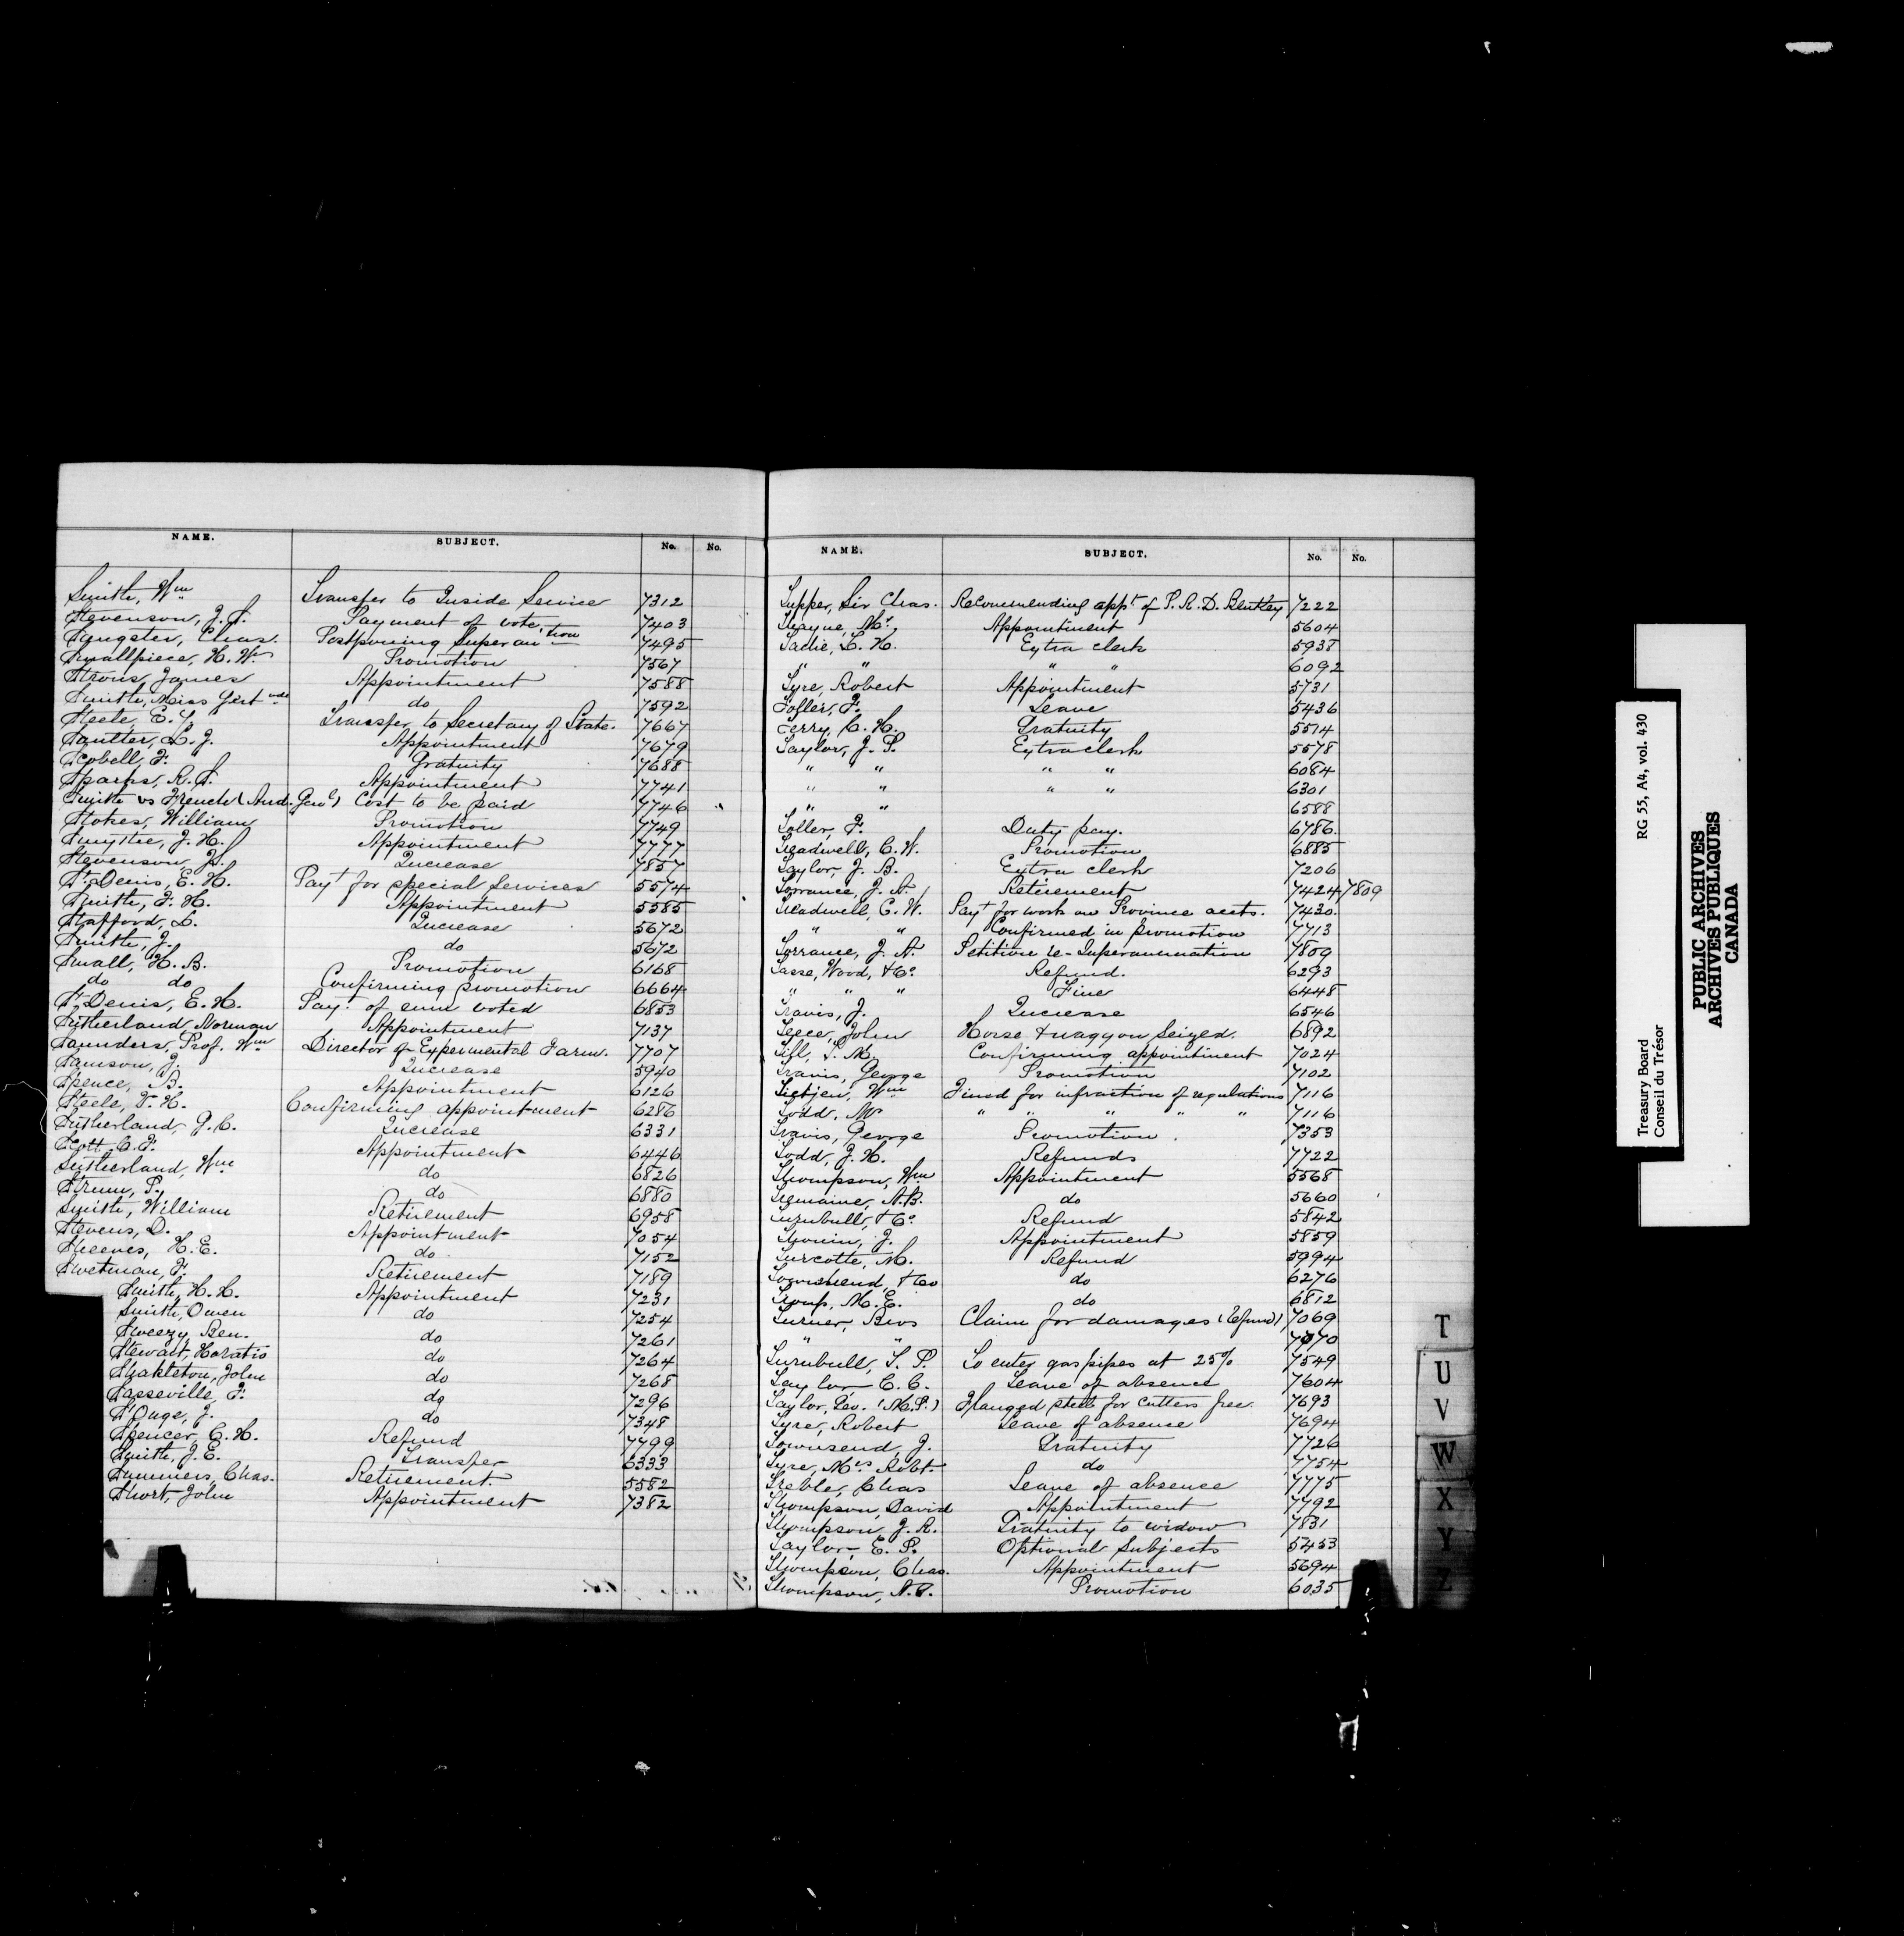 NAME. SUBJECT. No. No.
Smith, Wm Transfer to Inside Service 7312
Stevenson, J.S. Payment of vote 7403
Sangster, Chas. Postponing Superan-tion 7495
Smallpiece, H. W. Promotion 7567
Strous, James Appointment 7588
Smith, Miss Gert do 7592
Steele, E. Transfer to Secretary of State. 7667
Sautter, L. J. Appointment 7679
Scobell, F. Gratuity 7688
Sparks, R. S. Appointment 7741
Smith vs French (Aud. Genl) Cost to be paid 7746
Stokes, William Promotion 7749
Smythe, J. H. Appointment 7777
Stevenson, J. Increase 7857
St Denis, E. H. Payt for special services 5574
Smith, F. H. Appointment 5585
Stafford, L. Increase 5672
Smith, J. do 5672
Small, H. B. Promotion 6168
do do Confirming promotion 6664
St Denis, E. H. Payt of sum voted 6853
Sutherland, Norman Appointment 7137
Saunders, Prof. Wm Director of Expermental Farm. 7707
Samson, J. Increase 5940
Spence, B. Appointment 6126
Steele, F. H. Confirming appointment 6286
Sutherland, J. C. Increase 6331
Scott, C. F. Appointment 6446
Sutherland, Wm do 6826
Strum, P. do 6880
Smith, William Retirement 6958
Stevens, D. Appointment 7054
Steeves, H. E. do 7152
Swetman, F. Retirement 7189
Smith, H. H. Appointment 7231
Smith, Owen do 7254
Sweezy, Ben. do 7261
Stewart, Horatio do 7264
Shakleton, John do 7268
Sasseville, F. do 7296
St Onge, J. do 7348
Spencer, C. H. Refund 7799
Smith, J. E. Transfer 6333
Summers, Chas. Retirement. 5582
Short, John Appointment 7382
NAME. SUBJECT. No. No.
Tupper, Sir Chas. Recommending appt of P. R. D. Bentley 7222
Thayne, Mr. Appointment 5604
Tache, L. H. Extra clerk 5938
" " " " 6092
Tyre, Robert Appointment 5731
Toller, F. Leave 5436
Terry, C. H. Gratuity 5514
Taylor, J. P. Extra clerk 5578
" " " " 6084
" " " " 6301
" " 6588
Toller, F. Duty pay. 6786
Treadwell, C. W. Promotion 6885
Taylor, J. B. Extra clerk 7206
Torrance, J. A. Retirement 7424 7809
Treadwell, C. W. Payt for work on Province accts. 7430
" " Confirmed in promotion 7713
Torrance, J. A. Petition re Superannuation 7809
Tasse, Wood, & Co. Refund. 6293
" " " Fine 6448
Travis, J. Increase 6546
Teece, John Horse & waggon Seized. 6892
Tifl, S. M. Confirming appointment 7024
Travis, George Promotion 7102
Tietjen, Wm Fined for infraction of regulations 7116
Todd, Mr " " " " " 7116
Travis, George Promotion. 7353
Todd, J. H. Refunds 7722
Thompson, Wm Appointment 5568
Tremaine, A. B. do 5660
Turnbull, & Co. Refund 5842
Thomin, J. Appointment 5859
Turcotte, M. Refund 5994
Townshend, & Co do 6276
Tromp, M. E. do 6812
Turner, Bros Claim for damages (Refund) 7069
" " 7070
Turnbull, T. P. To enter gas pipes at 25% 7549
Taylor, C. C. Leave of absence 7604
Taylor, Geo. (M.P.) Flanged steel for cutters free. 7693
Tyre, Robert Leave of absence 7694
Townsend, J. Gratuity 7726
Tyre, Mrs Robt. do 7754
Treble, Chas Leave of absence 7775
Thompson, David Appointment 7792
Thompson, J. R. Gratuity to widow 7831
Taylor, E. P. Optional Subjects 5453
Thompson, Chas. Appointment 5694
Thompson, A. P. Promotion 6035
T
U
V
W
X
Y
Z
Treasury Board RG 55, A4, vol. 430
Conseil du Trésor
PUBLIC ARCHIVES
ARCHIVES PUBLIQUES
CANADA